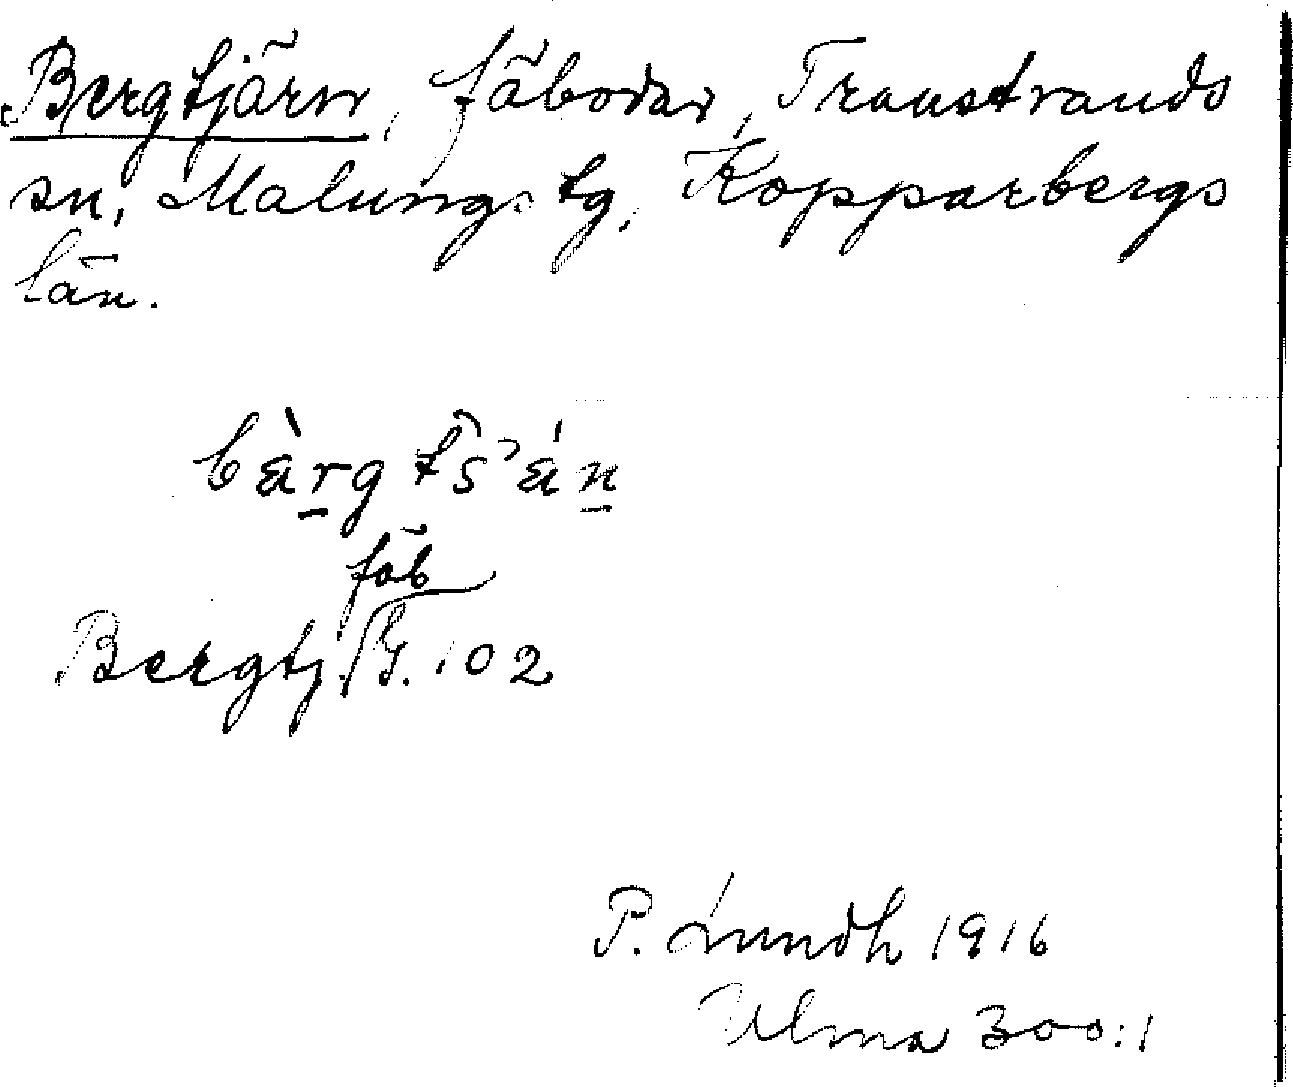 Bergtjärn, fäbodar, Transtrands
sn, Malungs tg, Kopparbergs
län.
fäb
Bergtj. 102
P. Lundh 1916
Ulma 300:1